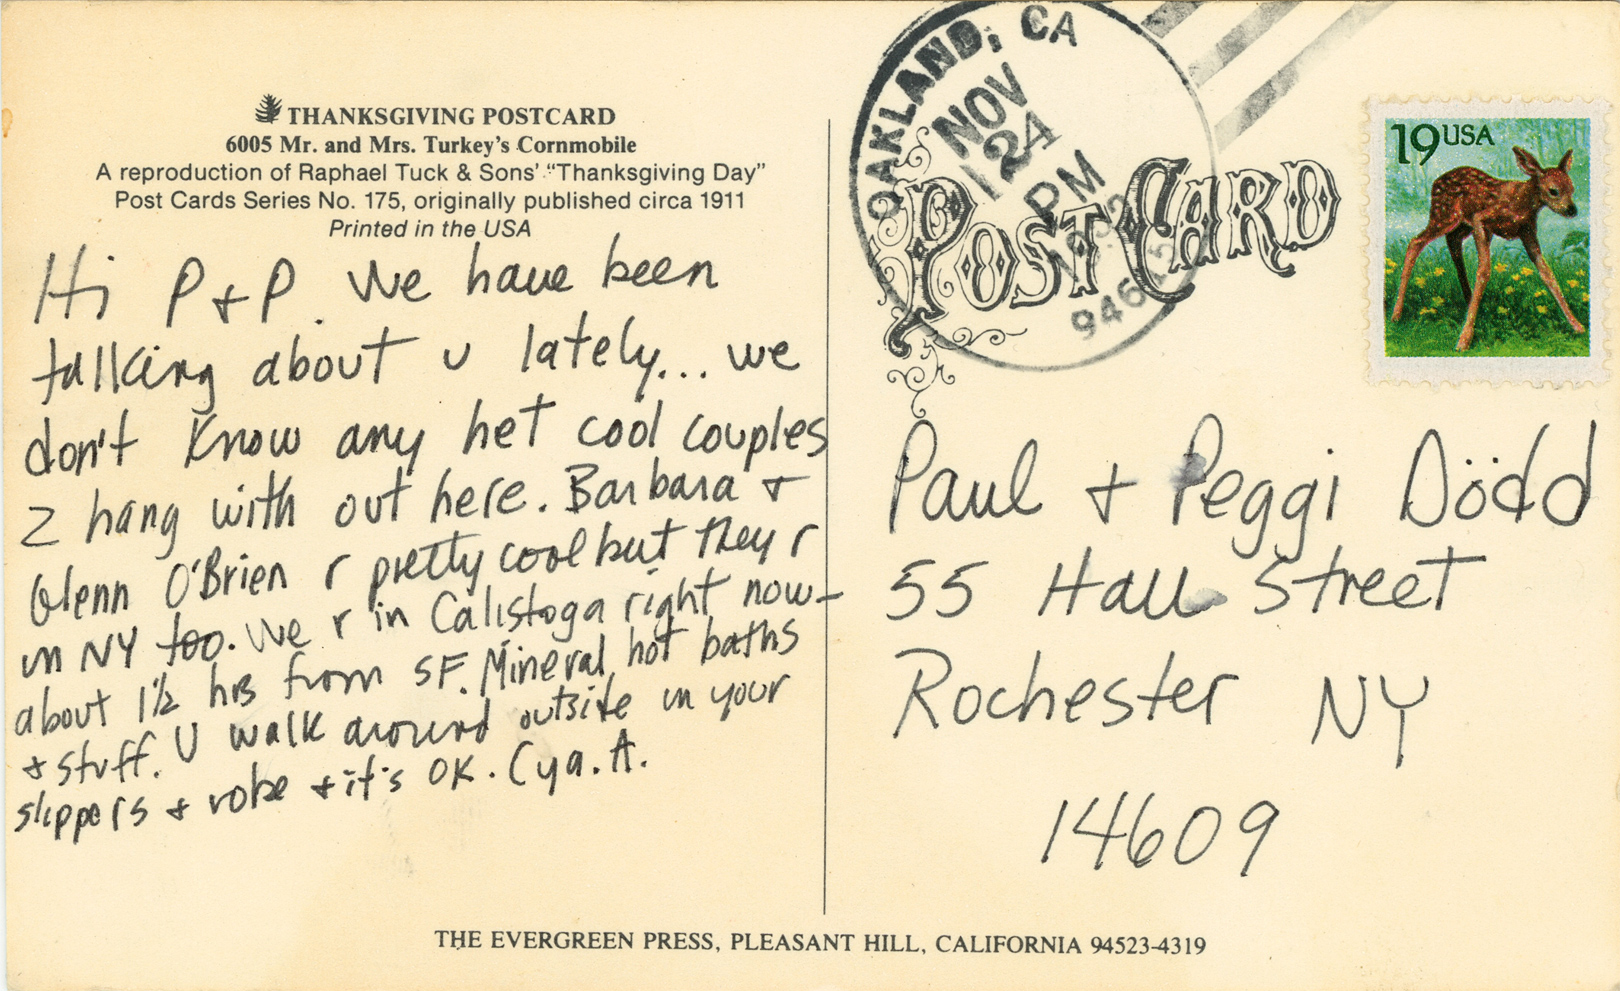 THANKSGIVING POSTCARD
6005 Mr. and Mrs. Turkey's Cornmobile
A reproduction of Raphael Tuck & Sons' "Thanksgiving Day"
Post Cards Series No. 175, originally published circa 1911
Printed in the USA
Hi P + P. We have been
talking about u lately... we
don't know any het cool couples
2 hang with out here. Barbara +
Glenn O'Brien r pretty cool but they r
in NY too. We r in Calistoga right now-
about 1½ hrs from SF. Mineral hot baths
+ stuff. U walk around outside in your
slippers + robe + it's OK. Cya. A.
OAKLAND, CA
NOV
24
PM
1992
POST CARD
19 USA
Paul + Peggi Dödd
55 Hall Street
Rochester NY
14609
THE EVERGREEN PRESS, PLEASANT HILL, CALIFORNIA 94523-4319